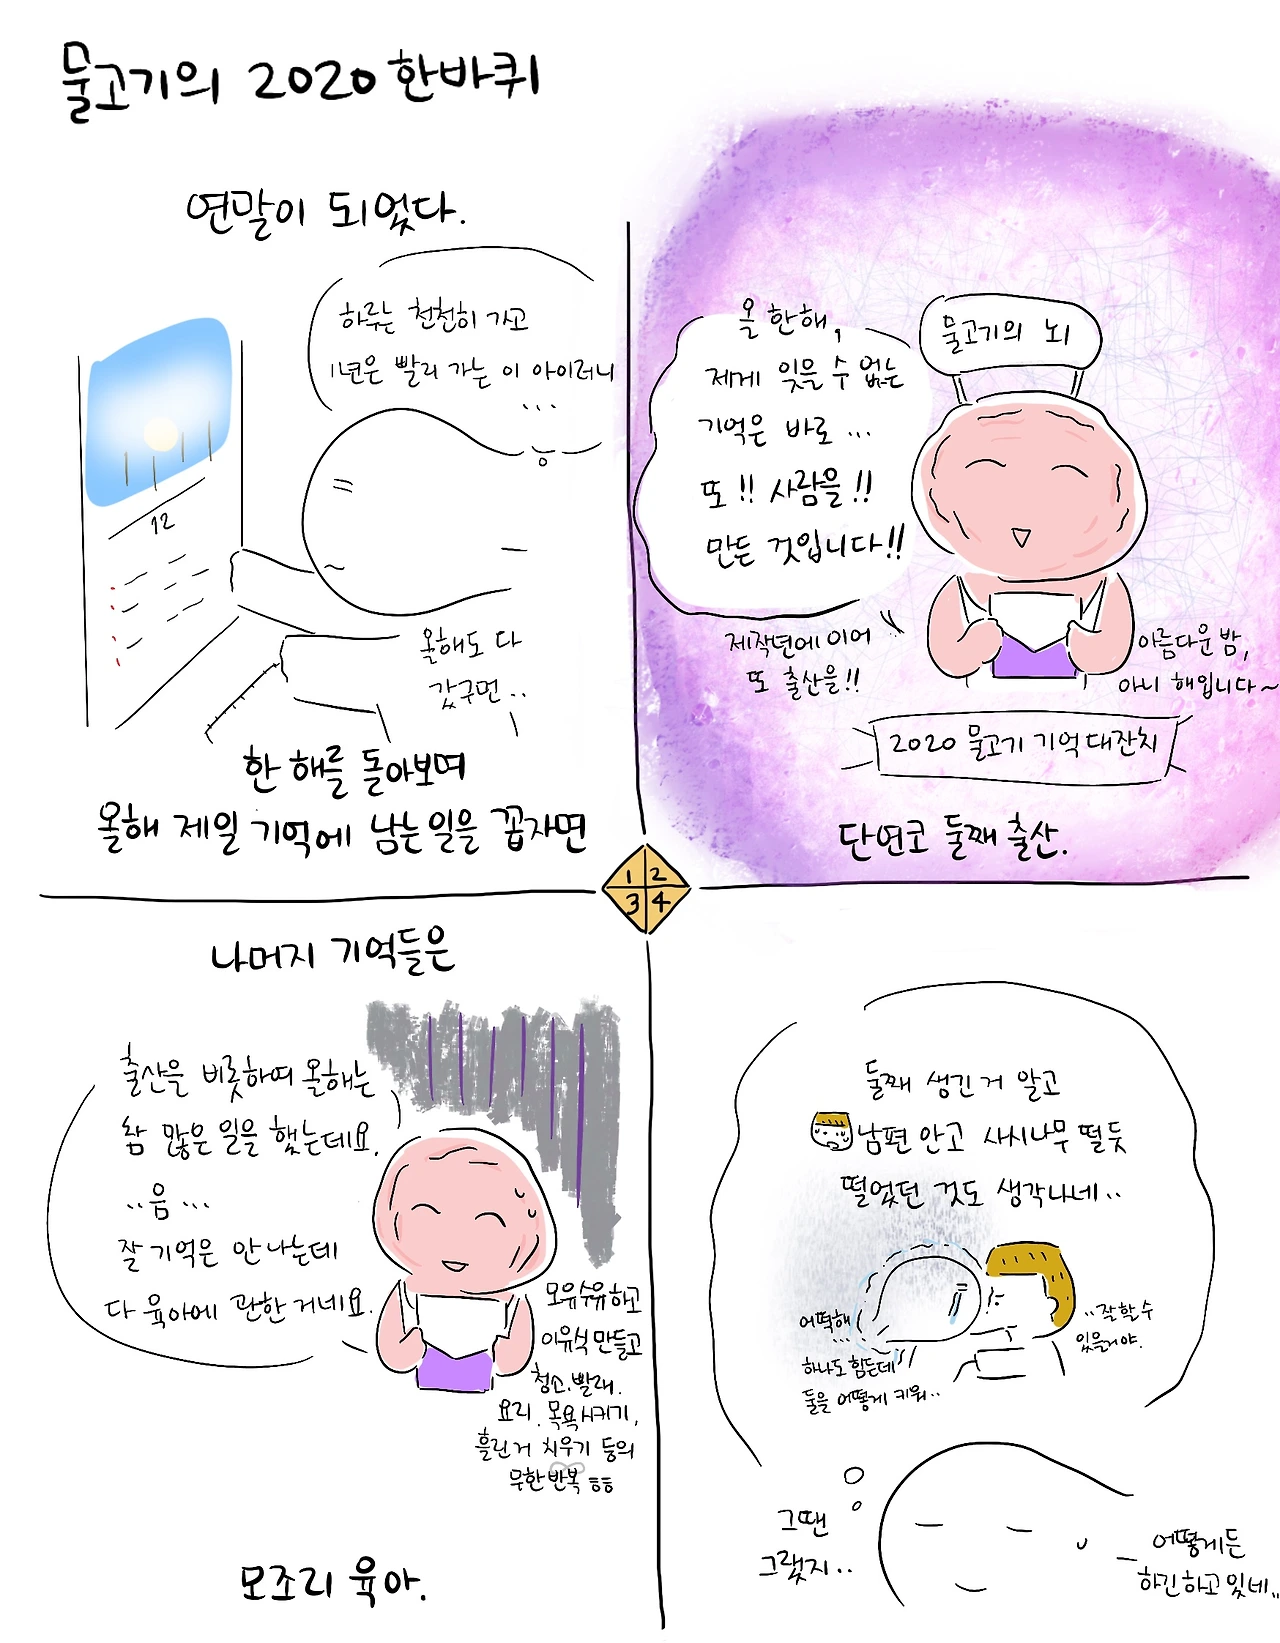 물고기의 2020 한바퀴
연말이 되었다.
하루는 천천히 가고
1년은 빨리 가는 이 아이러니
...
12
올해도 다
갔구먼..
한 해를 돌아보며
올해 제일 기억에 남는 일을 꼽자면
올 한해,
제게 잊을 수 없는
기억은 바로 ...
또!! 사람을!!
만든 것입니다!!
물고기의 뇌
제작년에 이어
또 출산을!!
아름다운 밤,
아니 해입니다~
2020 물고기 기억 대잔치
단연코 둘째 출산.
1 2
3 4
나머지 기억들은
출산을 비롯하여 올해는
참 많은 일을 했는데요.
..음...
잘 기억은 안 나는데
다 육아에 관한 거네요.
모유수유하고
이유식 만들고
청소.빨래.
요리. 목욕시키기,
흘린 거 치우기 등의
무한반복 ㅎㅎ
모조리 육아.
둘째 생긴 거 알고
남편 안고 사시나무 떨듯
떨었던 것도 생각나네..
어떡해
...
하나도 힘든데
둘을 어떻게 키워..
..잘할 수
있을거야.
그땐
그랬지..
어떻게든
하긴 하고 있네..